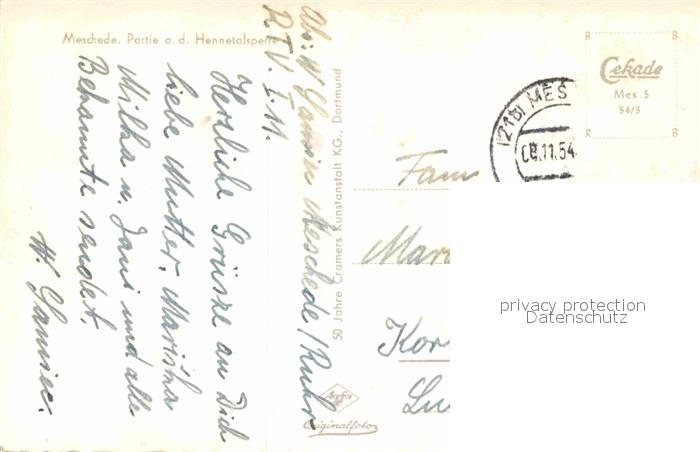 Meschede. Partie a. d. Hennetalsperre
Herzliche Grüsze an Dich
liebe Mutter, Marisha
Milka u. Jani und alle
Bekannte sendet,
Abs: W
Meschede/Ruhr
50 Jahre Cramers Kunstanstalt KG., Dortmund
Agfa
Originalfoto
B B
Cekade
Mes 5
54/3
R R
(21b) MES
08.11.54
Fam
Mar
Kor
Lu
privacy protection
Datenschutz